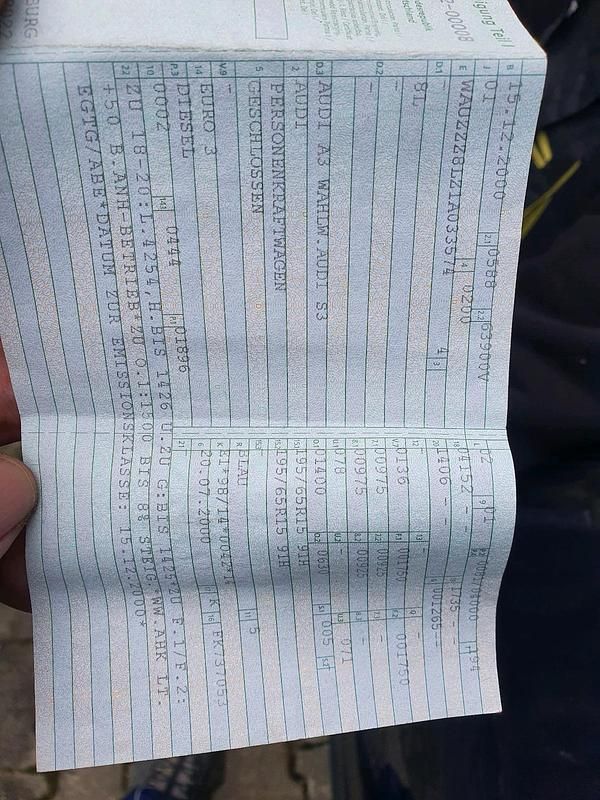 igung Teil I
-00008
BURG
B 15.12.2000 2.1 0588 2.2 63900V
J 01 4 0200
E WAUZZZ8LZ1A033574 3 4
D.1 -
8L
D.2 -
-
D.3 AUDI A3 WAHLW.AUDI S3
2 AUDI
5 PERSONENKRAFTWAGEN
GESCHLOSSEN
V.9 -
14 EURO 3
P.3 DIESEL
10 0002 14.1 0444 P.1 01896
22 ZU 18-20:L.4254,H.BIS 1426 U.ZU G:BIS 1425*ZU F.1/F.2:
+50 B.ANH-BETRIEB*ZU O.1:1500 BIS 8% STEIG.*WW.AHK LT.
EGTG/ABE*DATUM ZUR EMISSIONSKLASSE: 15.12.2000*
L 02 9 01 T 194
18 04152 - - 19 1735 - -
20 1406 - - G 001265 -
12 - 13 - Q -
V.7 0136 F.1 001750 F.2 001750
7.1 00975 7.2 00925 7.3 -
8.1 00975 8.2 00925 8.3 -
U.1 078 U.2 - U.3 071
O.1 01400 O.2 0650 S.1 005 S.2
15.1 195/65R15 91H
15.2 195/65R15 91H
15.3 -
R BLAU 11 5
K
6 20.07.2000 17 K 16 FK737053
21